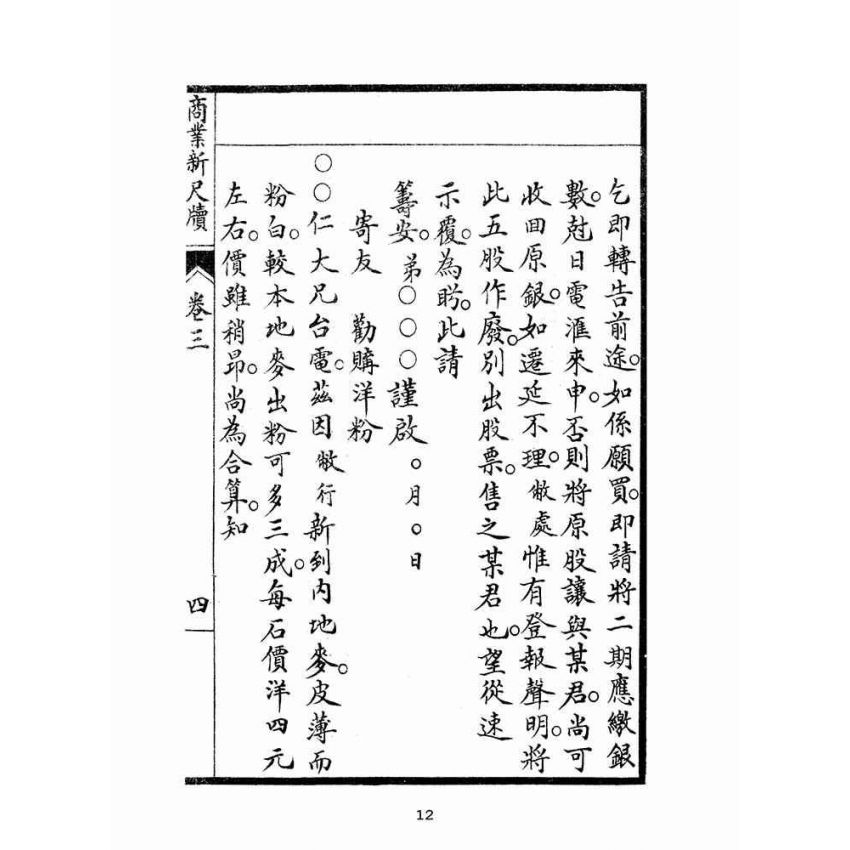 乞即轉告前途。如係願買。即請將二期應繳銀
數。尅日電滙來申。否則將原股讓與某君。尚可
收回原銀。如遷延不理。敝處惟有登報聲明。將
此五股作廢。別出股票。售之某君也。望從速
示覆。為盼。此請
籌安。弟○○○謹啟 ○月○日
寄友 勸購洋粉
○○仁大兄台電。茲因敝行新到內地麥。皮薄而
粉白。較本地麥出粉可多三成。每石價洋四元
左右。價雖稍昂。尚為合算。知
商業新尺牘 卷三 四
12